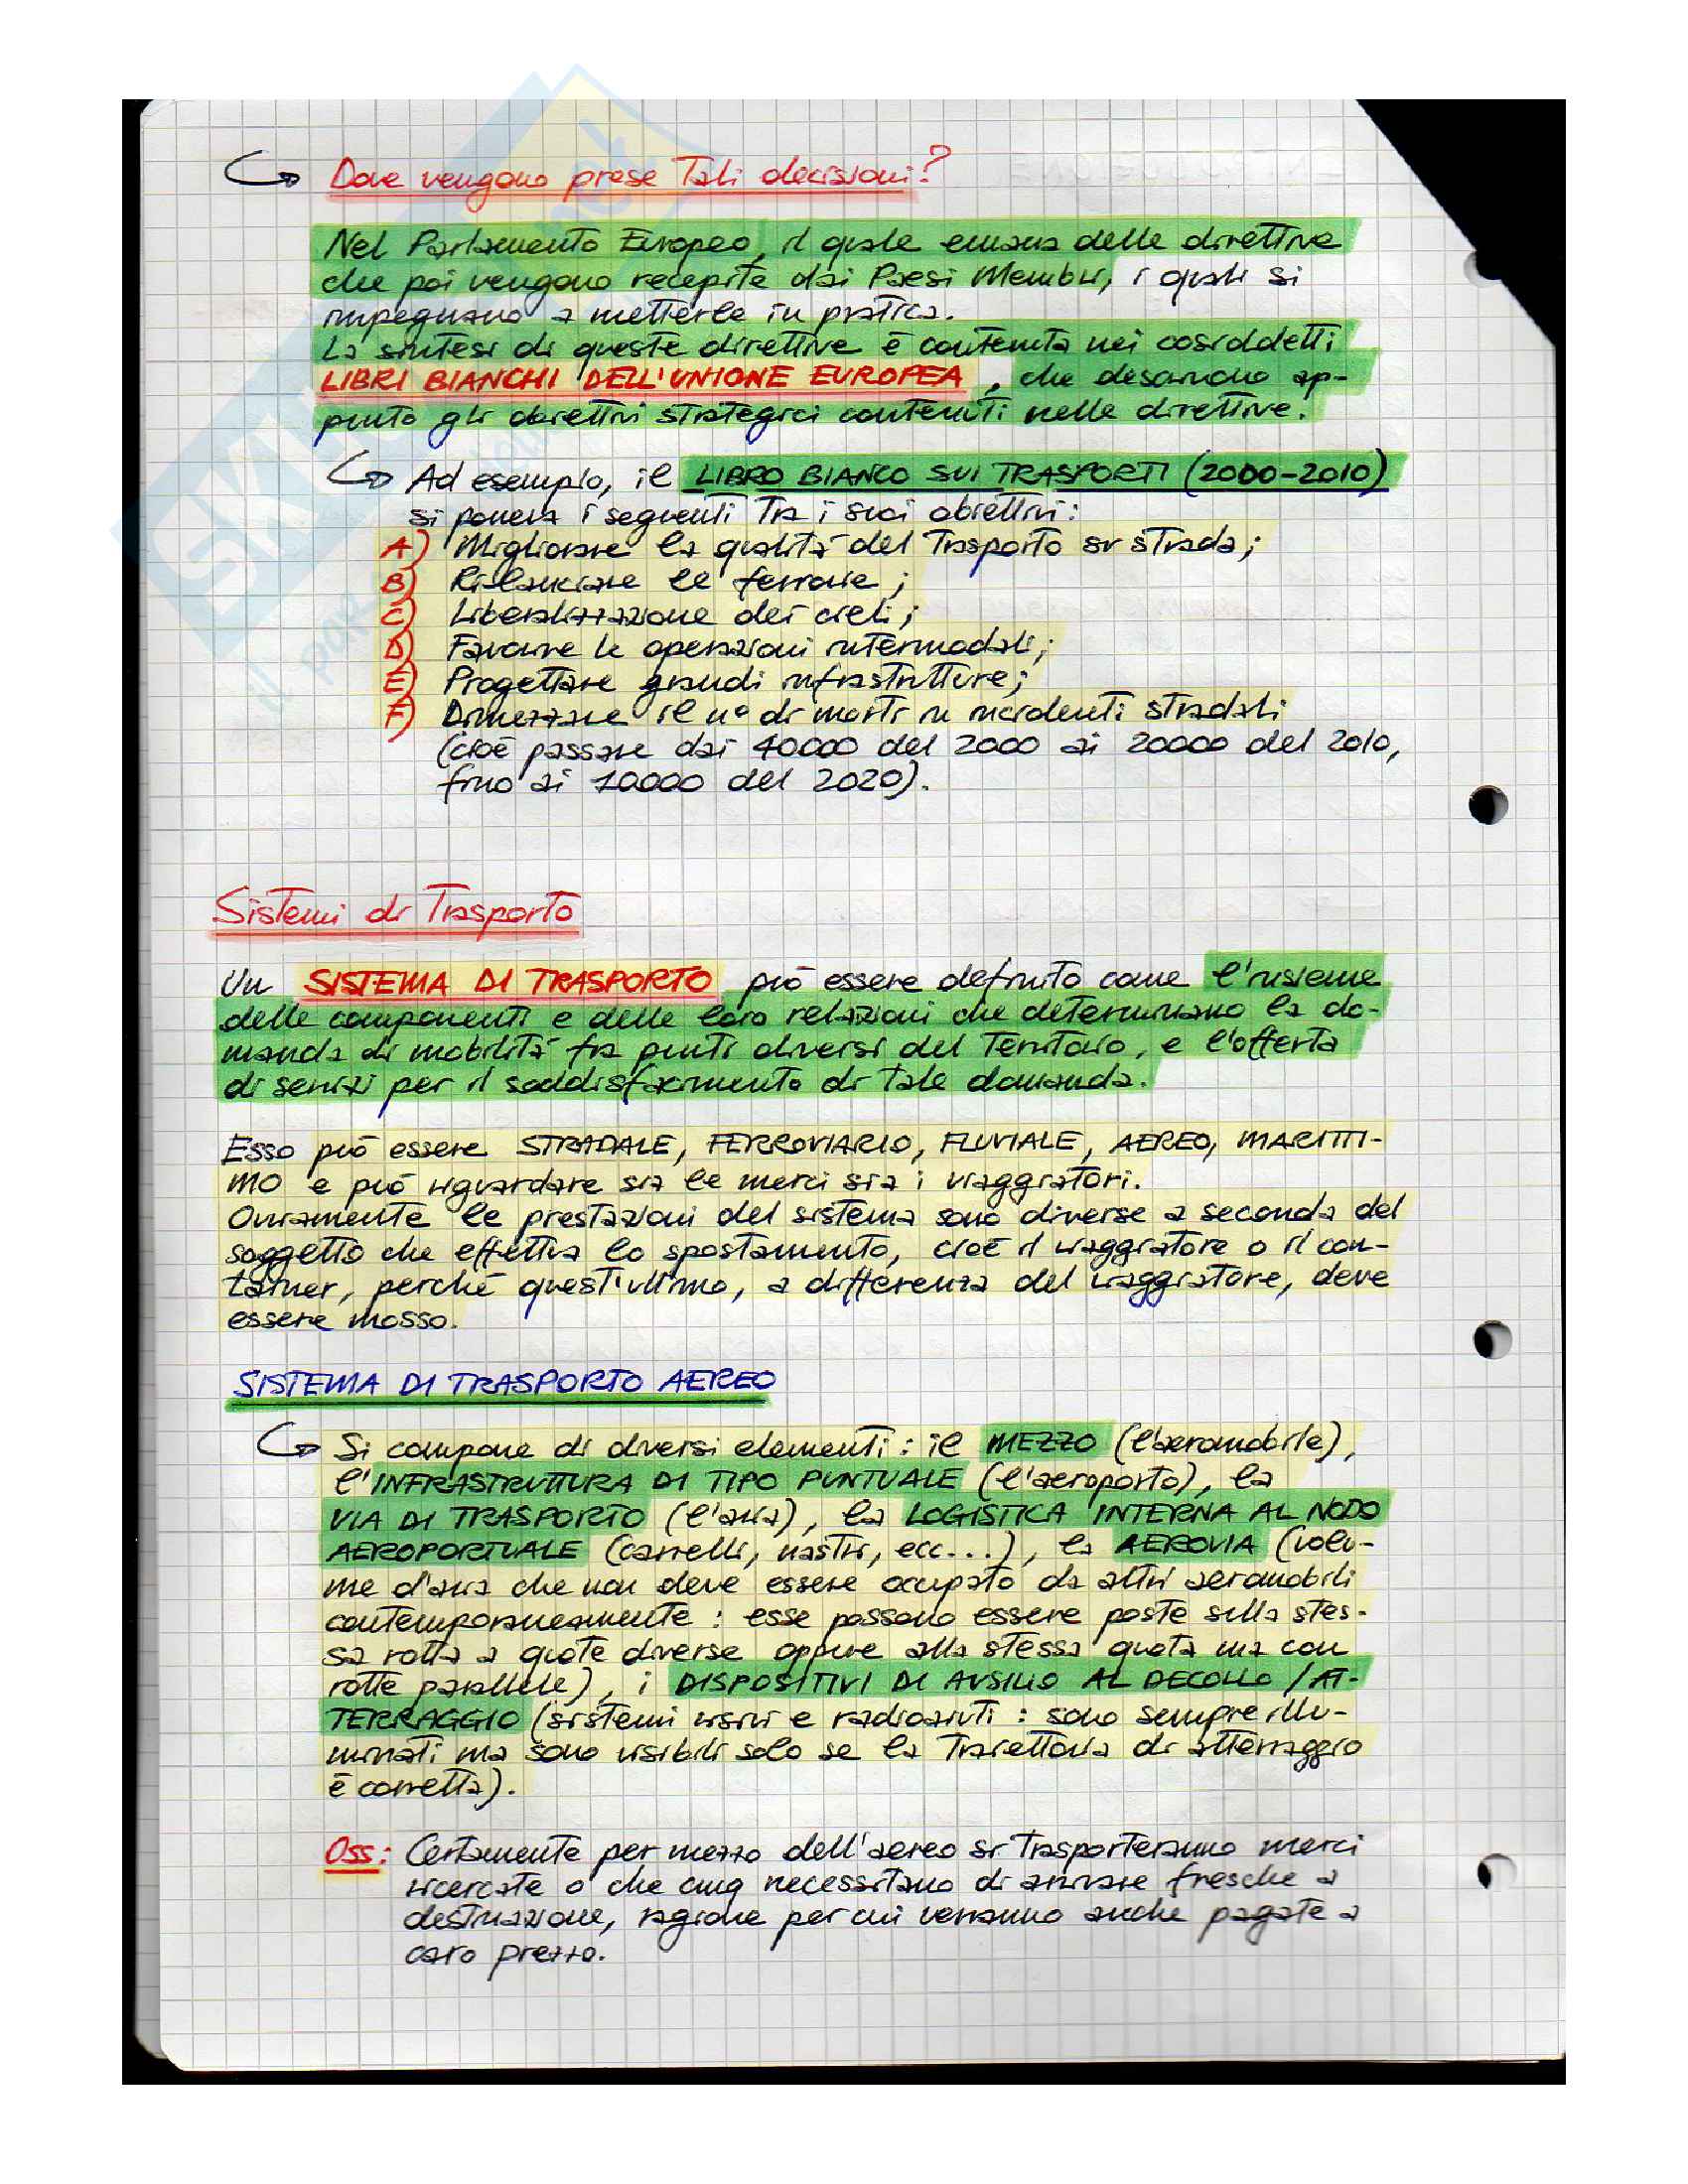 Dove vengono prese Tali decisioni?
Nel Parlamento Europeo, il quale emana delle direttive
che poi vengono recepite dai Paesi Membri, i quali si
impegnano a metterle in pratica.
La sintesi di queste direttive è contenuta nei cosiddetti
LIBRI BIANCHI DELL'UNIONE EUROPEA, che descrivono ap-
punto gli obiettivi strategici contenuti nelle direttive.
Ad esempio, il LIBRO BIANCO SUI TRASPORTI (2000-2010)
si poneva i seguenti Tra i suoi obiettivi:
A) Migliorare la qualità del Trasporto su strada;
B) Rilanciare le ferrovie;
C) Liberalizzazione dei cieli;
D) Favorire le operazioni intermodali;
E) Progettare grandi infrastrutture;
F) Dimezzare il n° di morti in incidenti stradali
(cioè passare dai 40000 del 2000 ai 20000 del 2010,
fino ai 10000 del 2020).
Sistemi di Trasporto
Un SISTEMA DI TRASPORTO può essere definito come l'insieme
delle componenti e delle loro relazioni che determinano la do-
manda di mobilità fra punti diversi del Territorio, e l'offerta
di servizi per il soddisfacimento di Tale domanda.
Esso può essere STRADALE, FERROVIARIO, FLUVIALE, AEREO, MARITTI-
MO e può riguardare sia le merci sia i viaggiatori.
Ovviamente le prestazioni del sistema sono diverse a seconda del
soggetto che effettua lo spostamento, cioè il viaggiatore o il con-
tainer, perché quest'ultimo, a differenza del viaggiatore, deve
essere mosso.
SISTEMA DI TRASPORTO AEREO
Si compone di diversi elementi: il MEZZO (l'aeromobile),
l'INFRASTRUTTURA DI TIPO PUNTUALE (l'aeroporto), la
VIA DI TRASPORTO (l'aria), la LOGISTICA INTERNA AL NODO
AEROPORTUALE (carrelli, nastri, ecc...), la AEROVIA (volu-
me d'aria che non deve essere occupato da altri aeromobili
contemporaneamente: esse possono essere poste sulla stes-
sa rotta a quote diverse oppure alla stessa quota ma con
rotte parallele), i DISPOSITIVI DI AUSILIO AL DECOLLO/AT-
TERRAGGIO (sistemi visivi e radioaiuti: sono sempre illu-
minati ma sono visibili solo se la Traiettoria di atterraggio
è corretta).
Oss: Certamente per mezzo dell'aereo si Trasporteranno merci
ricercate o che cmq necessitano di arrivare fresche a
destinazione, ragione per cui verranno anche pagate a
caro prezzo.